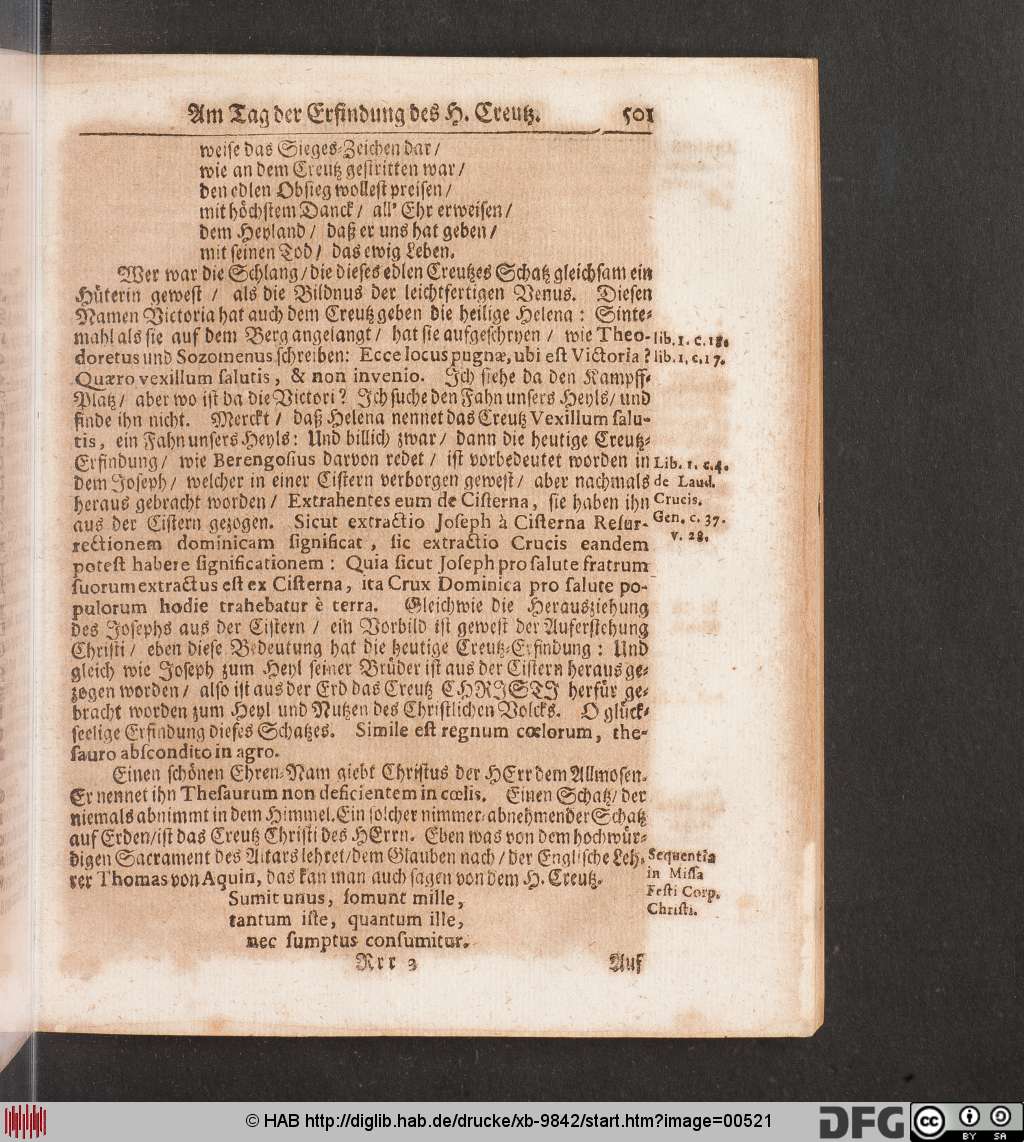 Am Tag der Erfindung des H. Creutz. 501
weise das Sieges-Zeichen dar /
wie an dem Creutz gestritten war /
den edlen Obsieg wollest preisen /
mit höchstem Danck / all' Ehr erweisen /
dem Heyland / daß er uns hat geben /
mit seinen Tod / das ewig Leben.
Wer war die Schlang / die dieses edlen Creutzes Schatz gleichsam ein
Hüterin gewest / als die Bildnus der leichtfertigen Venus. Diesen
Namen Victoria hat auch dem Creutz geben die heilige Helena : Sinte-
mahl als sie auf dem Berg angelangt / hat sie aufgeschryen / wie Theo-
doretus und Sozomenus schreiben: Ecce locus pugnæ, ubi est Victoria ?
Quæro vexillum salutis, & non invenio. Ich siehe da den Kampff-
Platz / aber wo ist da die Victori? Ich suche den Fahn unsers Heyls / und
finde ihn nicht. Merckt / daß Helena nennet das Creutz Vexillum salu-
tis, ein Fahn unsers Heyls: Und billich zwar / dann die heutige Creutz-
Erfindung / wie Berengosius darvon redet / ist vorbedeutet worden in
dem Joseph / welcher in einer Cistern verborgen gewest / aber nachmals
heraus gebracht worden / Extrahentes eum de Cisterna, sie haben ihn
aus der Cistern gezogen. Sicut extractio Joseph à Cisterna Resur-
rectionem dominicam significat, sic extractio Crucis eandem
potest habere significationem : Quia sicut Joseph pro salute fratrum
suorum extractus est ex Cisterna, ita Crux Dominica pro salute po-
pulorum hodie trahebatur è terra. Gleichwie die Herausziehung
des Josephs aus der Cistern / ein Vorbild ist gewest der Auferstehung
Christi / eben diese Bedeutung hat die heutige Creutz-Erfindung : Und
gleich wie Joseph zum Heyl seiner Brüder ist aus der Cistern heraus ge-
zogen worden / also ist aus der Erd das Creutz CHRISTI herfür ge-
bracht worden zum Heyl und Nutzen des Christlichen Volcks. O glück-
seelige Erfindung dieses Schatzes. Simile est regnum cœlorum, the-
sauro abscondito in agro.
Einen schönen Ehren-Nam giebt Christus der HErr dem Allmosen.
Er nennet ihn Thesaurum non deficientem in cœlis. Einen Schatz / der
niemals abnimmt in dem Himmel. Ein solcher nimmer abnehmender Schatz
auf Erden / ist das Creutz Christi des HErrn. Eben was von dem hochwür-
digen Sacrament des Altars lehret / dem Glauben nach / der Englische Leh-
rer Thomas von Aquin, das kan man auch sagen von dem H. Creutz.
Sumit unus, somunt mille,
tantum iste, quantum ille,
nec sumptus consumitur.
Rrr 3 Auf
lib. 1. c. 18.
lib. 1. c. 17.
Lib. 1. c. 4.
de Laud.
Crucis.
Gen. c. 37.
v. 28.
Sequentia
in Missa
Festi Corp.
Christi.
© HAB http://diglib.hab.de/drucke/xb-9842/start.htm?image=00521
DFG
cc BY SA